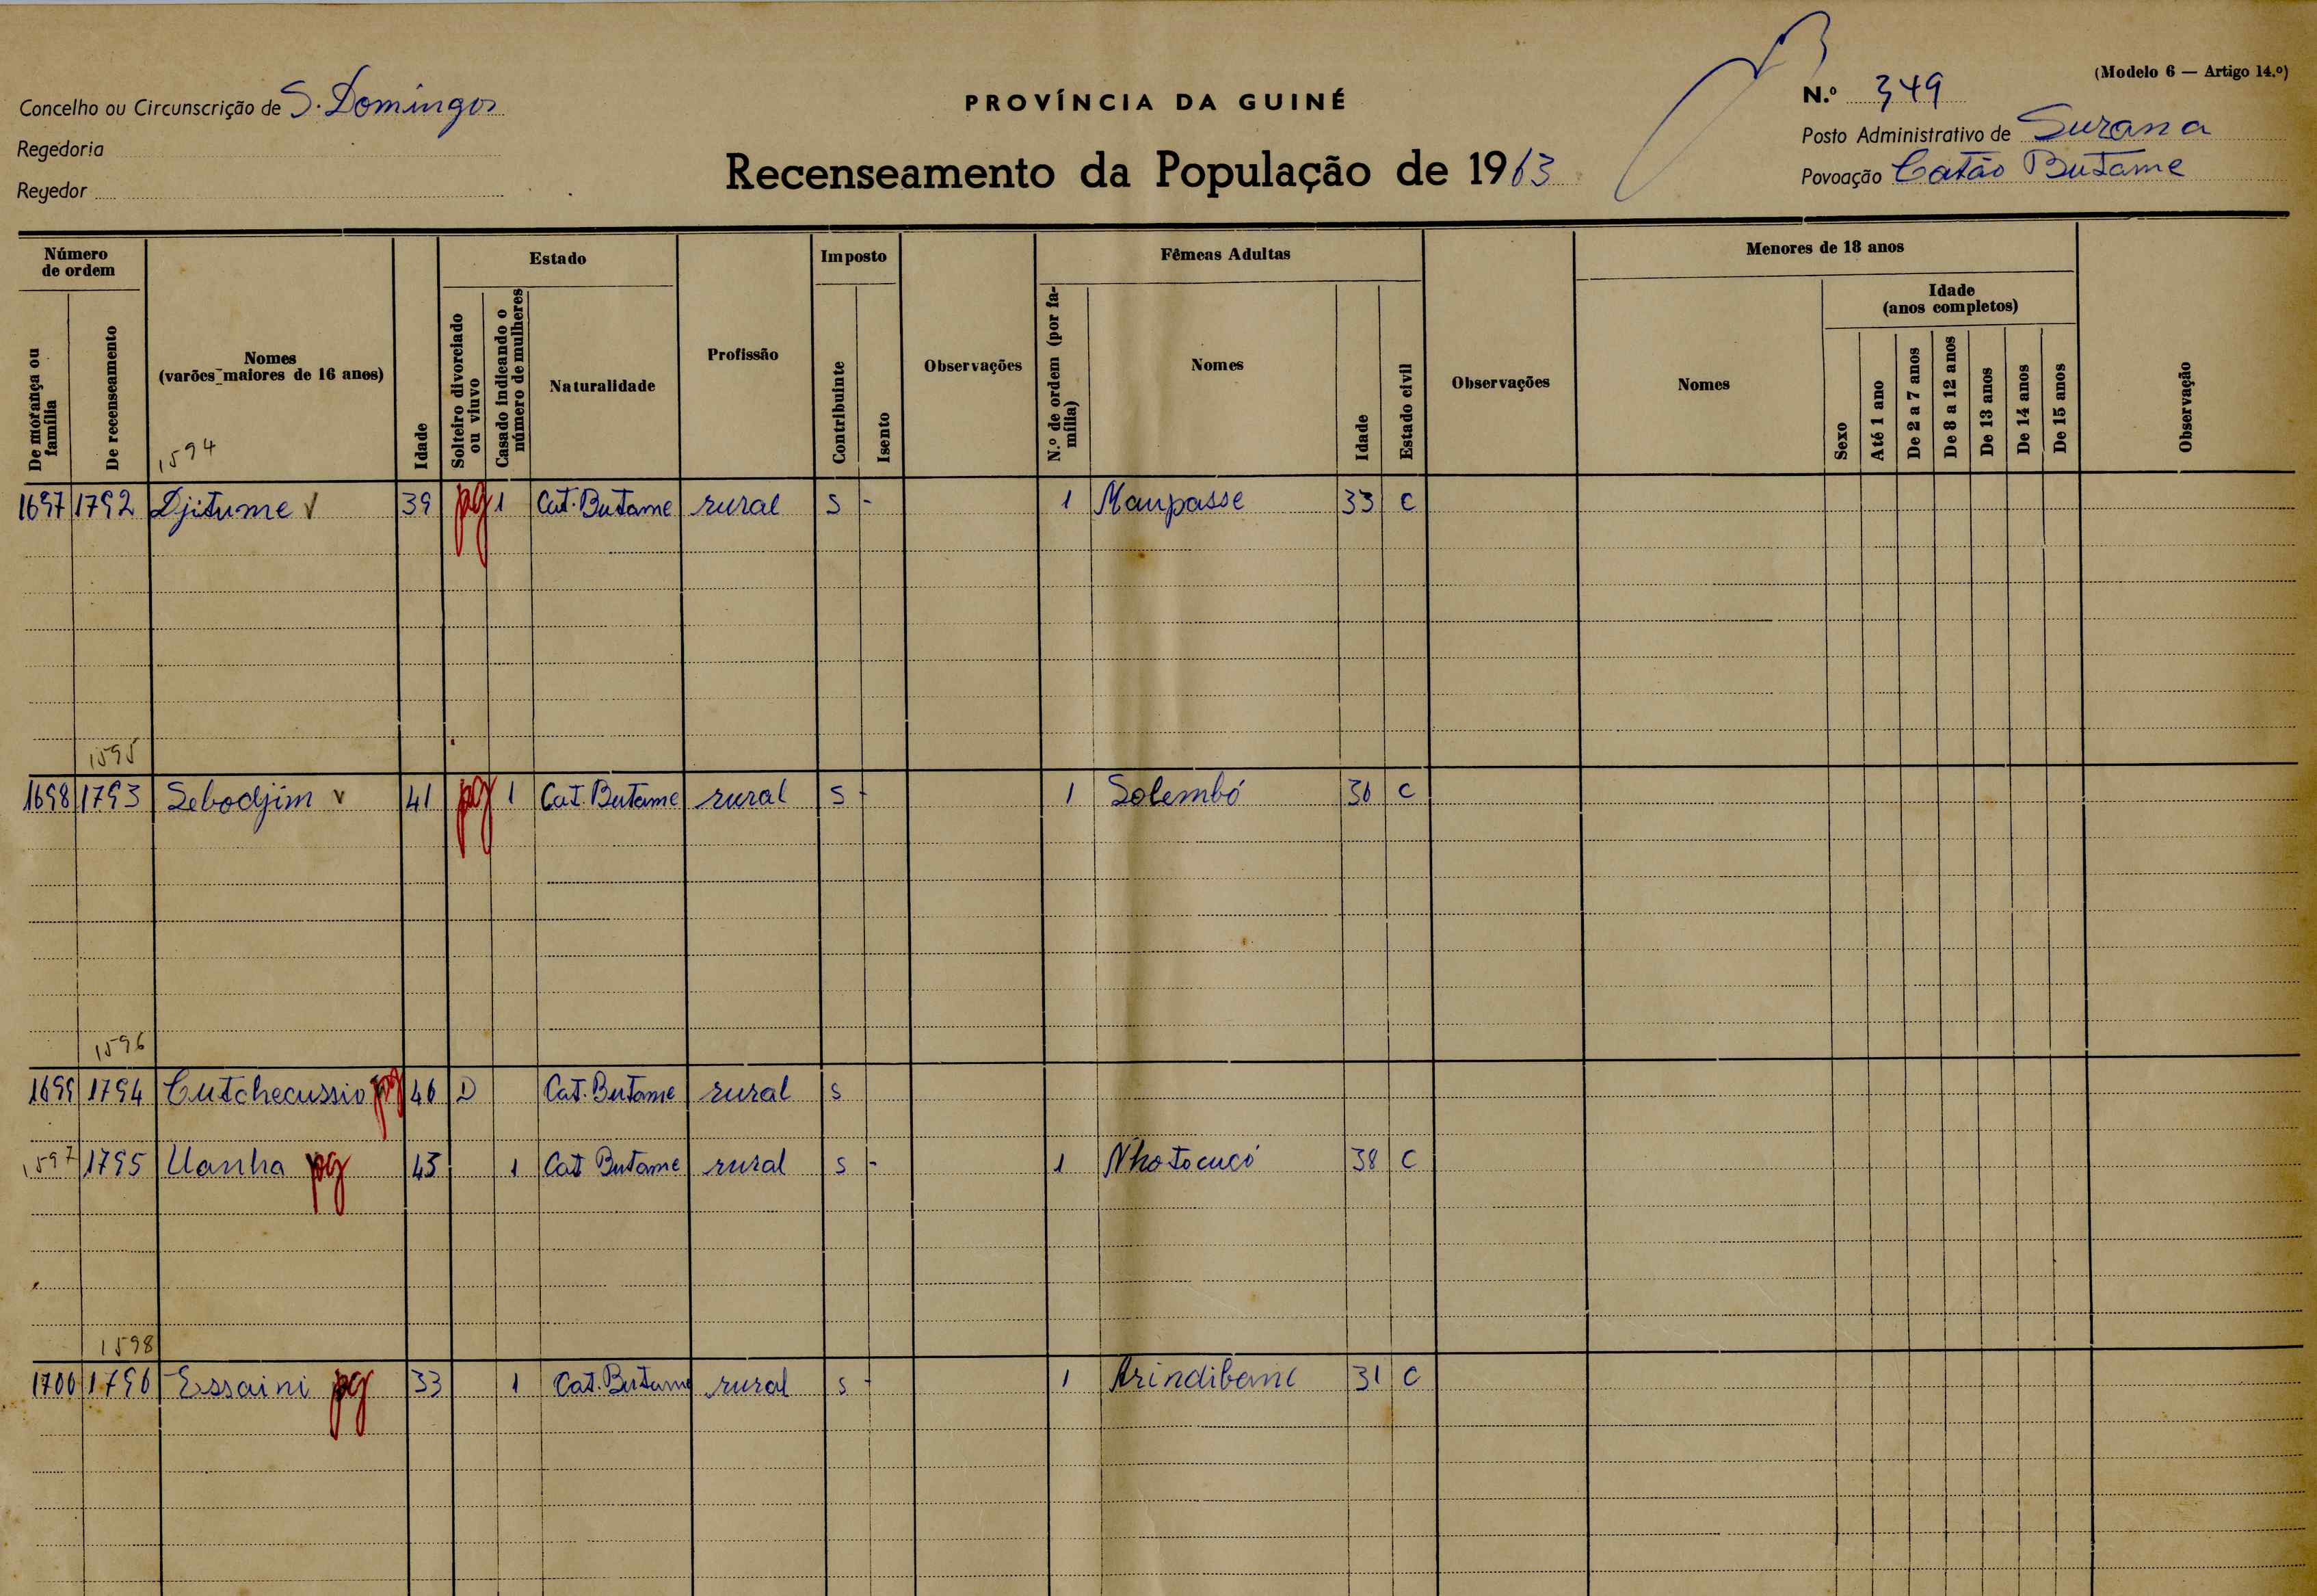 (Modelo 6 — Artigo 14.º)
Concelho ou Circunscrição de S. Domingos
PROVÍNCIA DA GUINÉ
N.º 349
Regedoria
Posto Administrativo de Suzana
Regedor
Recenseamento da População de 1963
Povoação Catão Butame
Número de ordem
Estado
Imposto
Fêmeas Adultas
Menores de 18 anos
Idade
(anos completos)
De morança ou família
De recenseamento
Nomes
(varões maiores de 16 anos)
Idade
Solteiro divorciado ou viuvo
Casado indicando o número de mulheres
Naturalidade
Profissão
Contribuinte
Isento
Observações
N.º de ordem (por família)
Nomes
Idade
Estado civil
Observações
Nomes
Sexo
Até 1 ano
De 2 a 7 anos
De 8 a 12 anos
De 13 anos
De 14 anos
De 15 anos
Observação
1594
1697 1792 Djitume V 39 pg 1 Cat. Butame rural S - 1 Maupasse 33 C
1595
1698 1793 Sebodjim v 41 pg 1 Cat. Butame rural S - 1 Solembó 36 C
1596
1699 1794 Cutchecussio pg 46 D Cat. Butame rural S
1597 1795 Uanha pg 43 1 Cat Butame rural S - 1 Nhotocucó 38 C
1598
1700 1796 Essaini pg 33 1 Cat. Butame rural S - 1 Arindibane 31 C